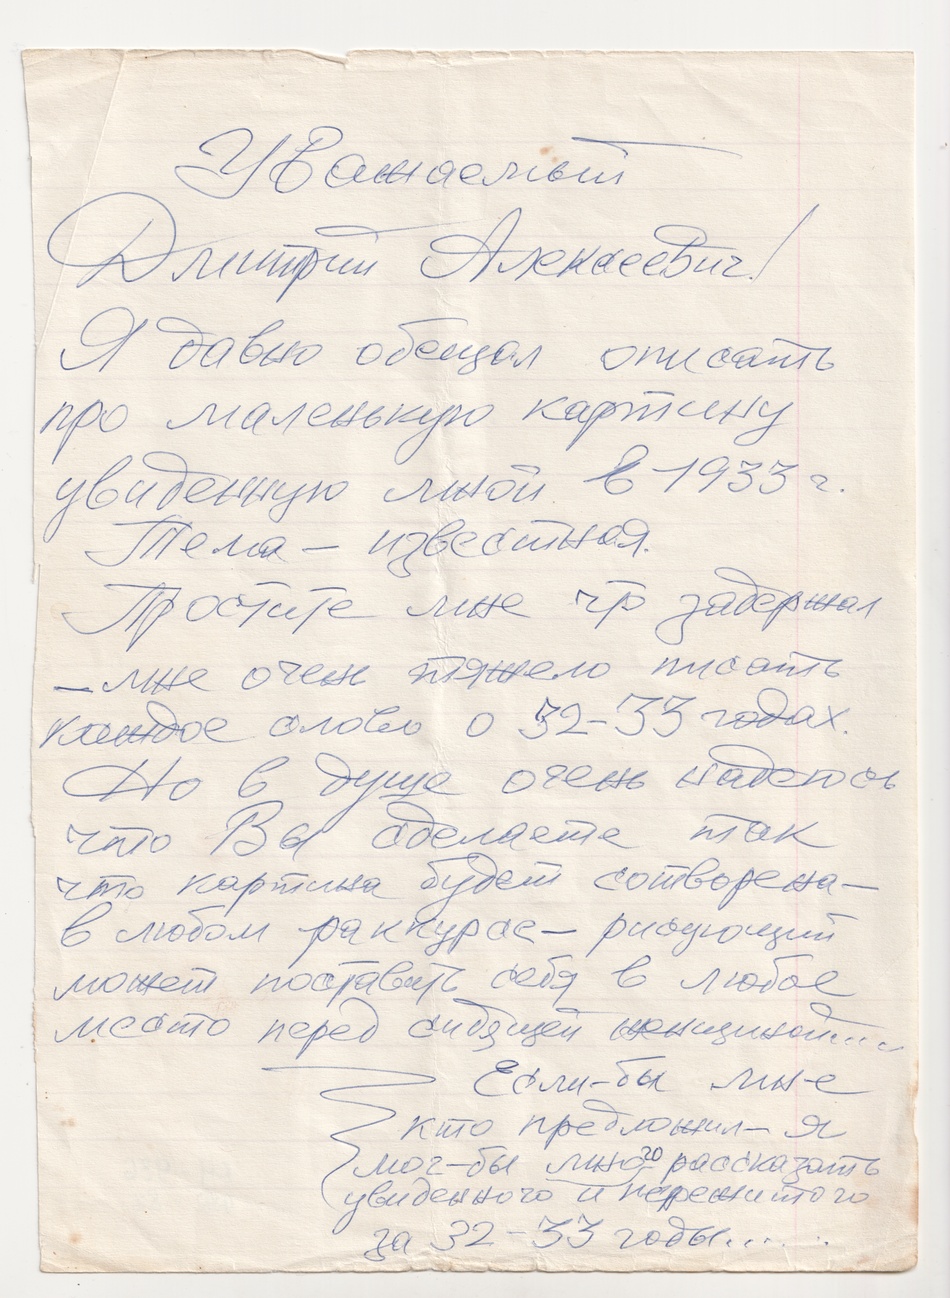 Уважаемый
Дмитрий Алексеевич!
Я давно обещал описать
про маленькую картину
увиденную мной в 1933 г.
Тема – известная.
Простите мне что задержал
– мне очень тяжело писать
каждое слово о 32–33 годах.
Но в душе очень надеюсь
что Вы сделаете так
что картина будет сотворена–
в любом раккурсе – рисующий
может поставить себя в любое
место перед сидящей женщиной....
Если-бы мне
кто предложил – я
мог-бы много рассказать
увиденного и пережитого
за 32–33 годы......